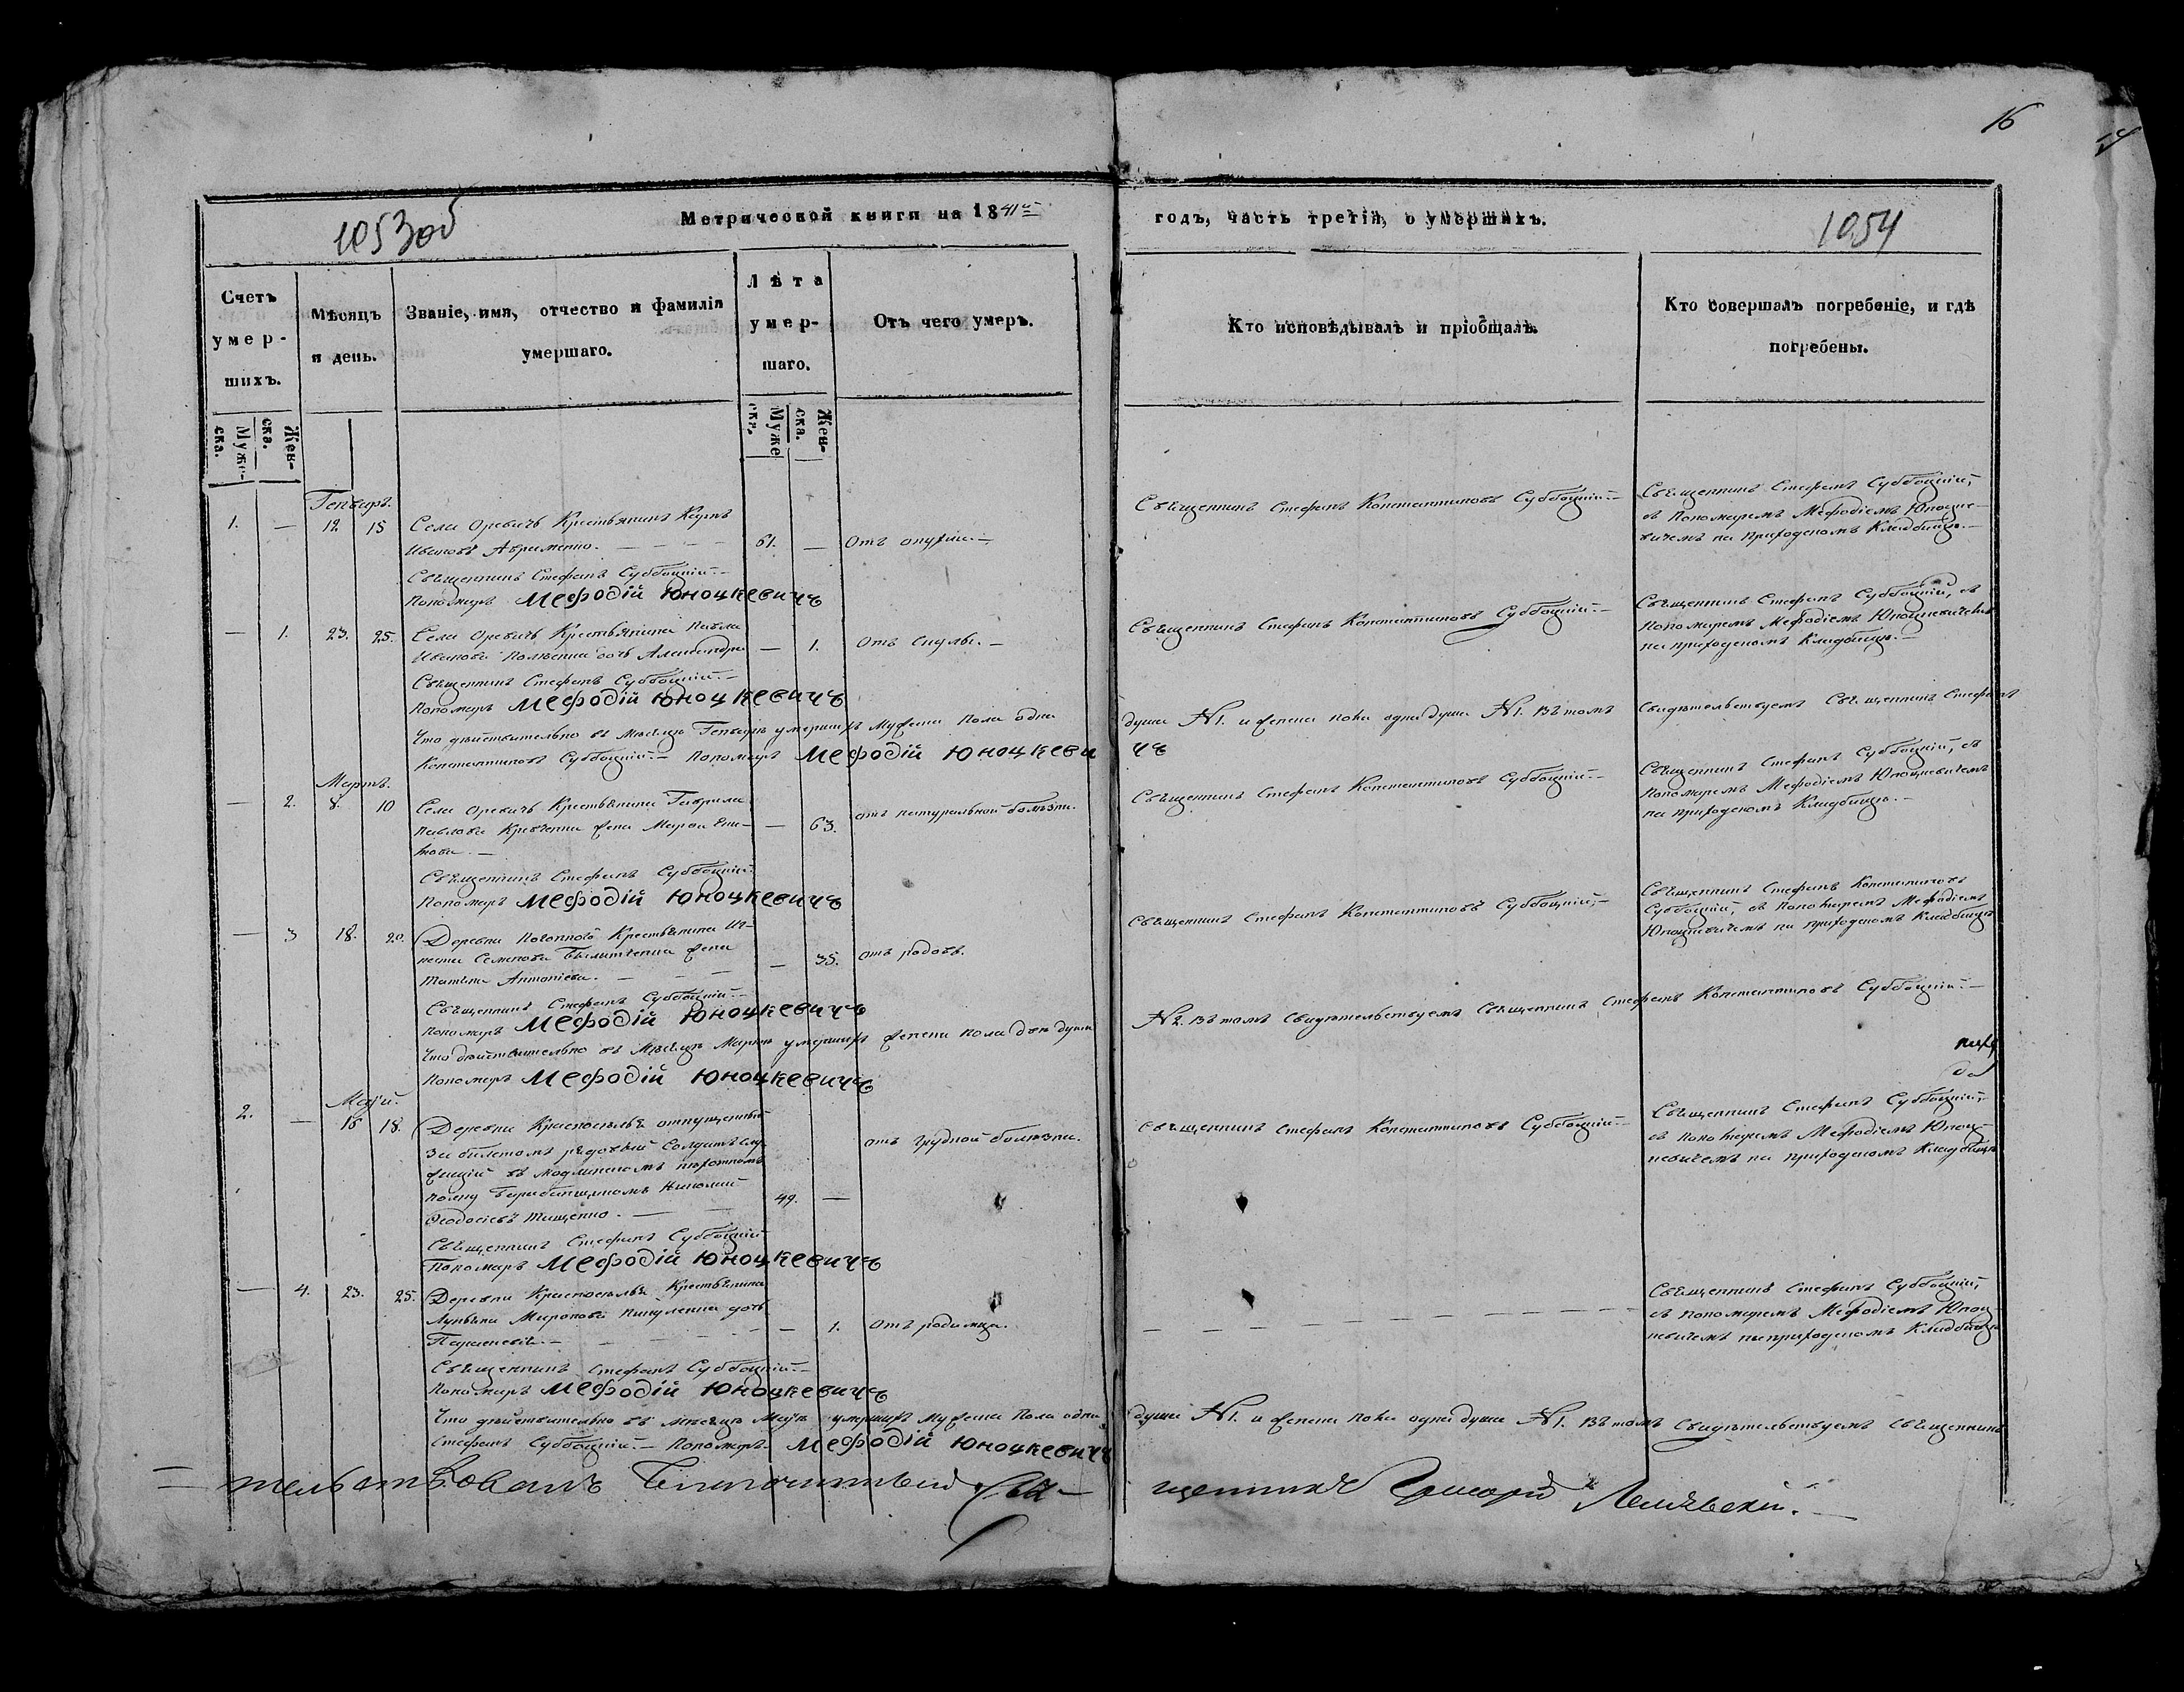 16
1053об
Метрической книги на 1841й
годъ, часть третія, о умершихъ.
1054
Счетъ умер-шихъ.
Мѣсяцъ и день.
Званіе, имя, отчество и фамилія умершаго.
Лѣта умер-шаго.
Отъ чего умеръ.
Кто исповѣдывалъ и пріобщалъ.
Кто совершалъ погребеніе, и гдѣ погребены.
Муже-ска.
Жен-ска.
Муже ска.
Жен-ска.
Генварь.
1. — 12 15
Села Оревичь Крестьянинъ
Ивановъ Авраменко. —
61. —
Отъ опухли. —
Священникъ Стефанъ Константиновъ Субботцкій. —
Священникъ Стефанъ Субботцкій,
съ Пономаремъ Мефодіемъ Юноцке-
вичемъ на приходскомъ Кладбищѣ. —
Священникъ Стефанъ Субботцкій. —
Пономарь Мефодій Юноцкевичъ
— 1. 23. 25.
Села Оревичь Крестьянина Павла
Иванова дочь Александра
— 1.
Отъ
Священникъ Стефанъ Константиновъ Субботцкій. —
Священникъ Стефанъ Субботцкій, съ
Пономаремъ Мефодіемъ Юноцкевичемъ
на приходскомъ Кладбищѣ. —
Священникъ Стефанъ Субботцкій. —
Пономарь Мефодій Юноцкевичъ
Что дѣйствительно въ Мѣсяцѣ Генварѣ умершихъ мужеска пола одна
душа №1. и женска пола одна душа №1. Въ томъ свидѣтельствуемъ Священникъ Стефанъ
Константиновъ Субботцкій. — Пономарь Мефодій Юноцкеви
чъ
Мартъ.
— 2. 8. 10
Села Оревичь Крестьянина Гаврила
Павлова жена Марѳа
— 63.
отъ натуральной болѣзни.
Священникъ Стефанъ Константиновъ Субботцкій. —
Священникъ Стефанъ Субботцкій, съ
Пономаремъ Мефодіемъ Юноцкевичемъ
на приходскомъ Кладбищѣ. —
Священникъ Стефанъ Субботцкій
Пономарь Мефодій Юноцкевичъ
— 3 18. 20.
Деревни Погоннаго Крестьянина Иг-
ната Семенова жена
Татьяна Антоніева. —
— 35.
отъ родовъ.
Священникъ Стефанъ Константиновъ Субботцкій, —
Священникъ Стефанъ Константиновъ
Субботцкій, съ Пономаремъ Мефодіемъ
Юноцкевичемъ на приходскомъ Кладбищѣ
Священникъ Стефанъ Субботцкій. —
Пономарь Мефодій Юноцкевичъ
Что дѣйствительно въ Мѣсяцѣ Мартѣ умершихъ женска пола двѣ души
№2. Въ томъ свидѣтельствуемъ Священникъ Стефанъ Константиновъ Субботцкій. —
Пономарь Мефодій Юноцкевичъ
Маій.
2. — 16 18.
Деревни Красноселья отпущенный
за билетомъ рядовый Солдатъ слу-
жащій въ Модлинскомъ пѣхотномъ
полку Николай
Ѳеодосіевъ Тищенко. —
49. —
отъ грудной болѣзни.
Священникъ Стефанъ Константиновъ Субботцкій. —
Священникъ Стефанъ Субботцкій,
съ Пономаремъ Мефодіемъ Юноц-
кевичемъ на приходскомъ Кладбищѣ
Священникъ Стефанъ Субботцкій
Пономарь Мефодій Юноцкевичъ
— 4. 23. 25.
Деревни Красноселья Крестьянина
Лукьяна Миронова дочь
— 1.
Отъ родимца.
Священникъ Стефанъ Субботцкій,
съ Пономаремъ Мефодіемъ Юноц-
кевичемъ на приходскомъ Кладбищѣ
Священникъ Стефанъ Субботцкій. —
Пономарь Мефодій Юноцкевичъ
Что дѣйствительно въ мѣсяцѣ Маіѣ умершихъ мужеска пола одна
душа №1. и женска пола одна душа №1. Въ томъ свидѣтельствуемъ Священникъ
Стефанъ Субботцкій. — Пономарь Мефодій Юноцкевичъ
тельствовалъ Благочинный Свя-
щенникъ Григорій